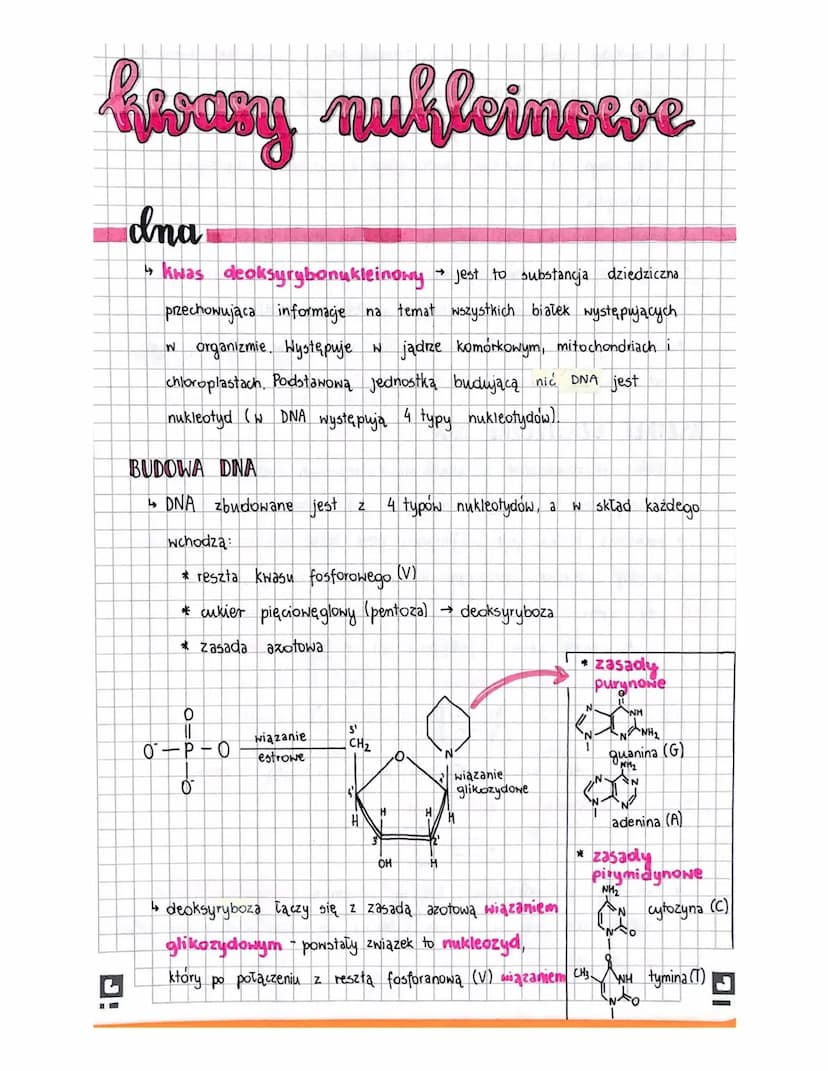 kwasy nukleinowe
dna
↳ kwas deoksyrybonukleinowy → jest to substancja dziedziczna
przechowująca informacje na temat wszystkich białek występujących
w organizmie. Występuje w jądrze komórkowym, mitochondriach i
chloroplastach. Podstawową jednostką budującą nić DNA jest
nukleotyd (w DNA występują 4 typy nukleotydów).
BUDOWA DNA
↳ DNA zbudowane jest z 4 typów nukleotydów, a w skład każdego
wchodzą:
* reszta kwasu fosforowego (V)
* cukier pięciowęglowy (pentoza) → deoksyryboza
* zasada azotowa
O
O⁻ — P — O
O⁻
wiązanie
estrowe
5'
CH₂
O
N
4'
1'
3'
2'
H
H
H
H
OH
H
wiązanie
glikozydowe
* zasady
purynowe
O
N
NH
N
N
NH₂
guanina (G)
NH₂
N
N
N
N
adenina (A)
* zasady
pirymidynowe
NH₂
N
N
O
cytozyna (C)
O
CH₃
NH
N
O
tymina (T)
↳ deoksyryboza łączy się z zasadą azotową wiązaniem
glikozydowym - powstały związek to nukleozyd,
który po połączeniu z resztą fosforanową (V) wiązaniem